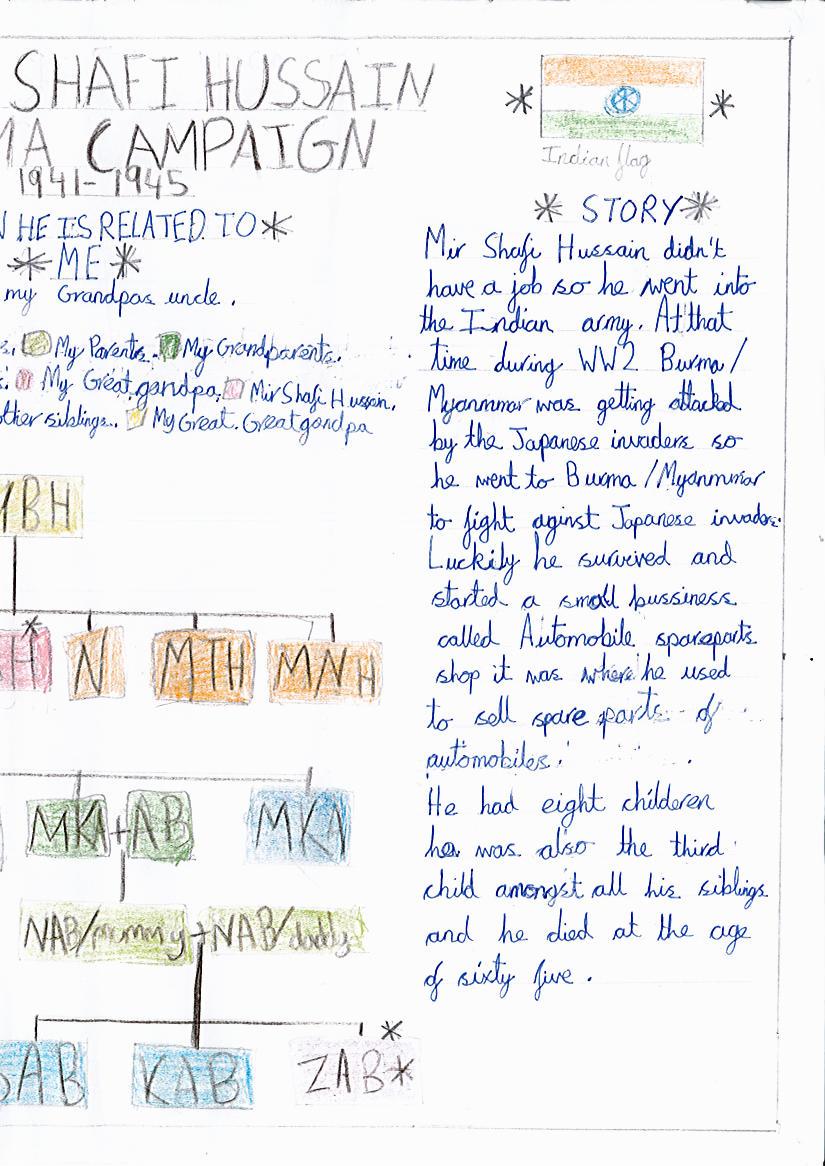 SHAFI HUSSAIN
MA CAMPAIGN
1941-1945
N HE IS RELATED TO*
*ME*
my Grandpas uncle.
s. My Parents.. My Grandparents.
s. My Great.grandpa. Mir Shafi Hussain.
other siblings.. My Great.Great grandpa
MBH
H* N MTH MNH
MKA+AB MKA
NAB/mummy+NAB/daddy
AB KAB ZAB*
*
Indian flag
* STORY*
Mir Shafi Hussain didn't
have a job so he went into
the Indian army. At that
time during WW2 Burma/
Myanmmar was getting attacked
by the Japanese invaders so
he went to Burma/Myanmmar
to fight aginst Japanese invaders.
Luckily he survived and
started a small bussiness
called Automobile spareparts
shop it was where he used
to sell spare parts of
automobiles.
He had eight childeren
he was also the third
child amongst all his siblings
and he died at the age
of sixty five.